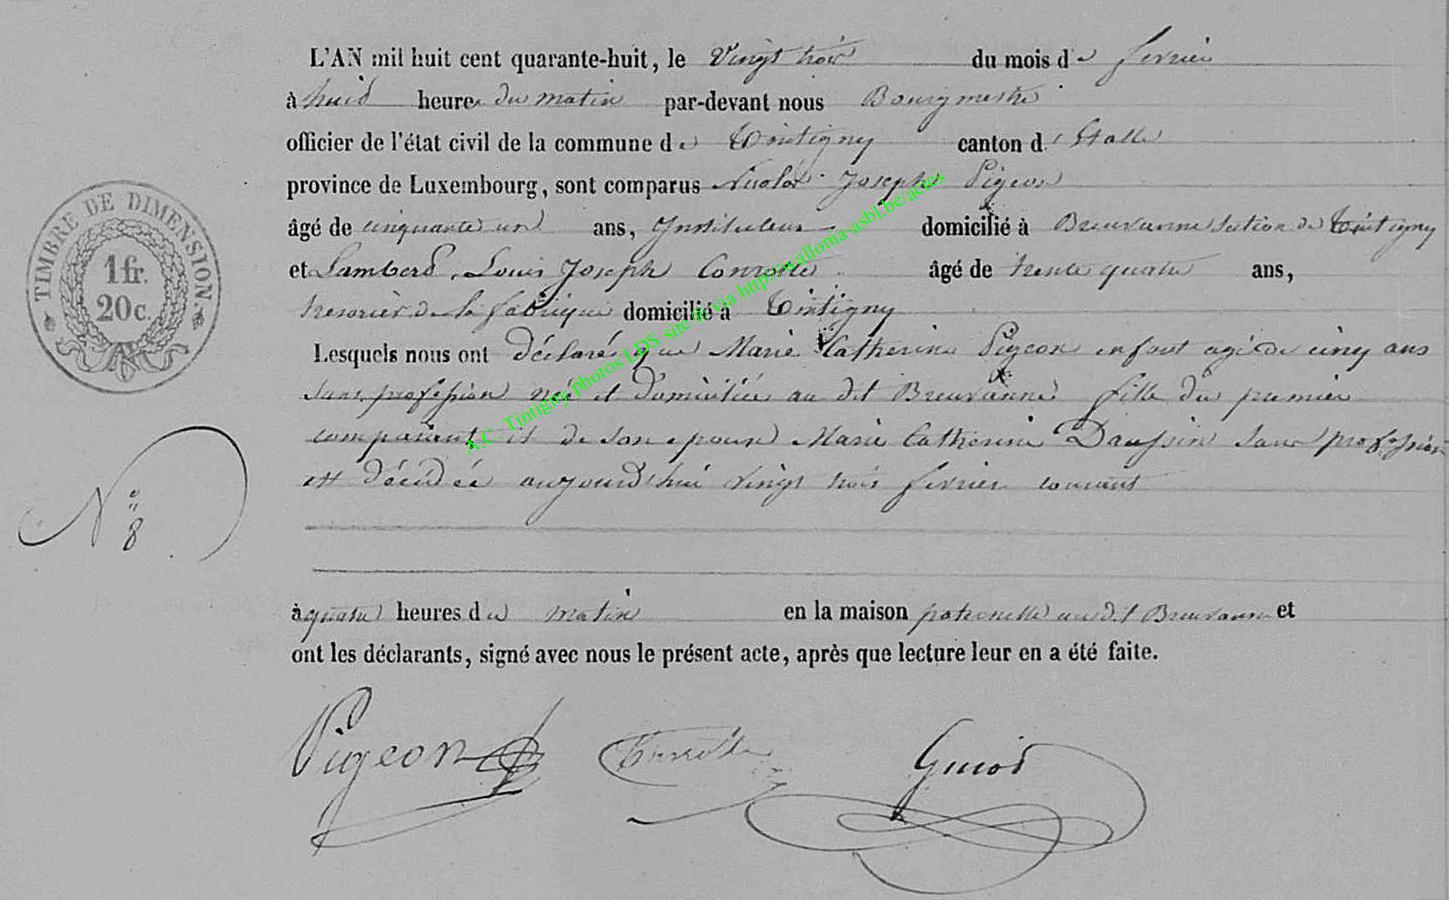 L'AN mil huit cent quarante-huit, le Vingt trois du mois de fevrier
à huit heures du matin par-devant nous Bourgmestre
officier de l'état civil de la commune de Tintigny canton d'Etalle
province de Luxembourg, sont comparus Nicolas Joseph Pigeon
âgé de cinquante un ans, Instituteur domicilié à Breuvanne section de Tintigny
et Lambert Louis Joseph âgé de trente quatre ans,
tresorier de la fabrique domicilié à Tintigny
Lesquels nous ont déclaré que Marie Catherine Pigeon enfant agé de cinq ans
sans profession née et domiciliée au dit Breuvanne fille du premier
comparant et de son epouse Marie Catherine sans profession
est décédée aujourd'hui vingt trois fevrier courant
à quatre heures du matin en la maison paternelle au dit Breuvanne et
ont les déclarants, signé avec nous le présent acte, après que lecture leur en a été faite.
TIMBRE DE DIMENSION.
1 fr.
20 c.
N° 8
Pigeon
A.C. Tintigny photos LDS site via alloma-asbl.be/actes